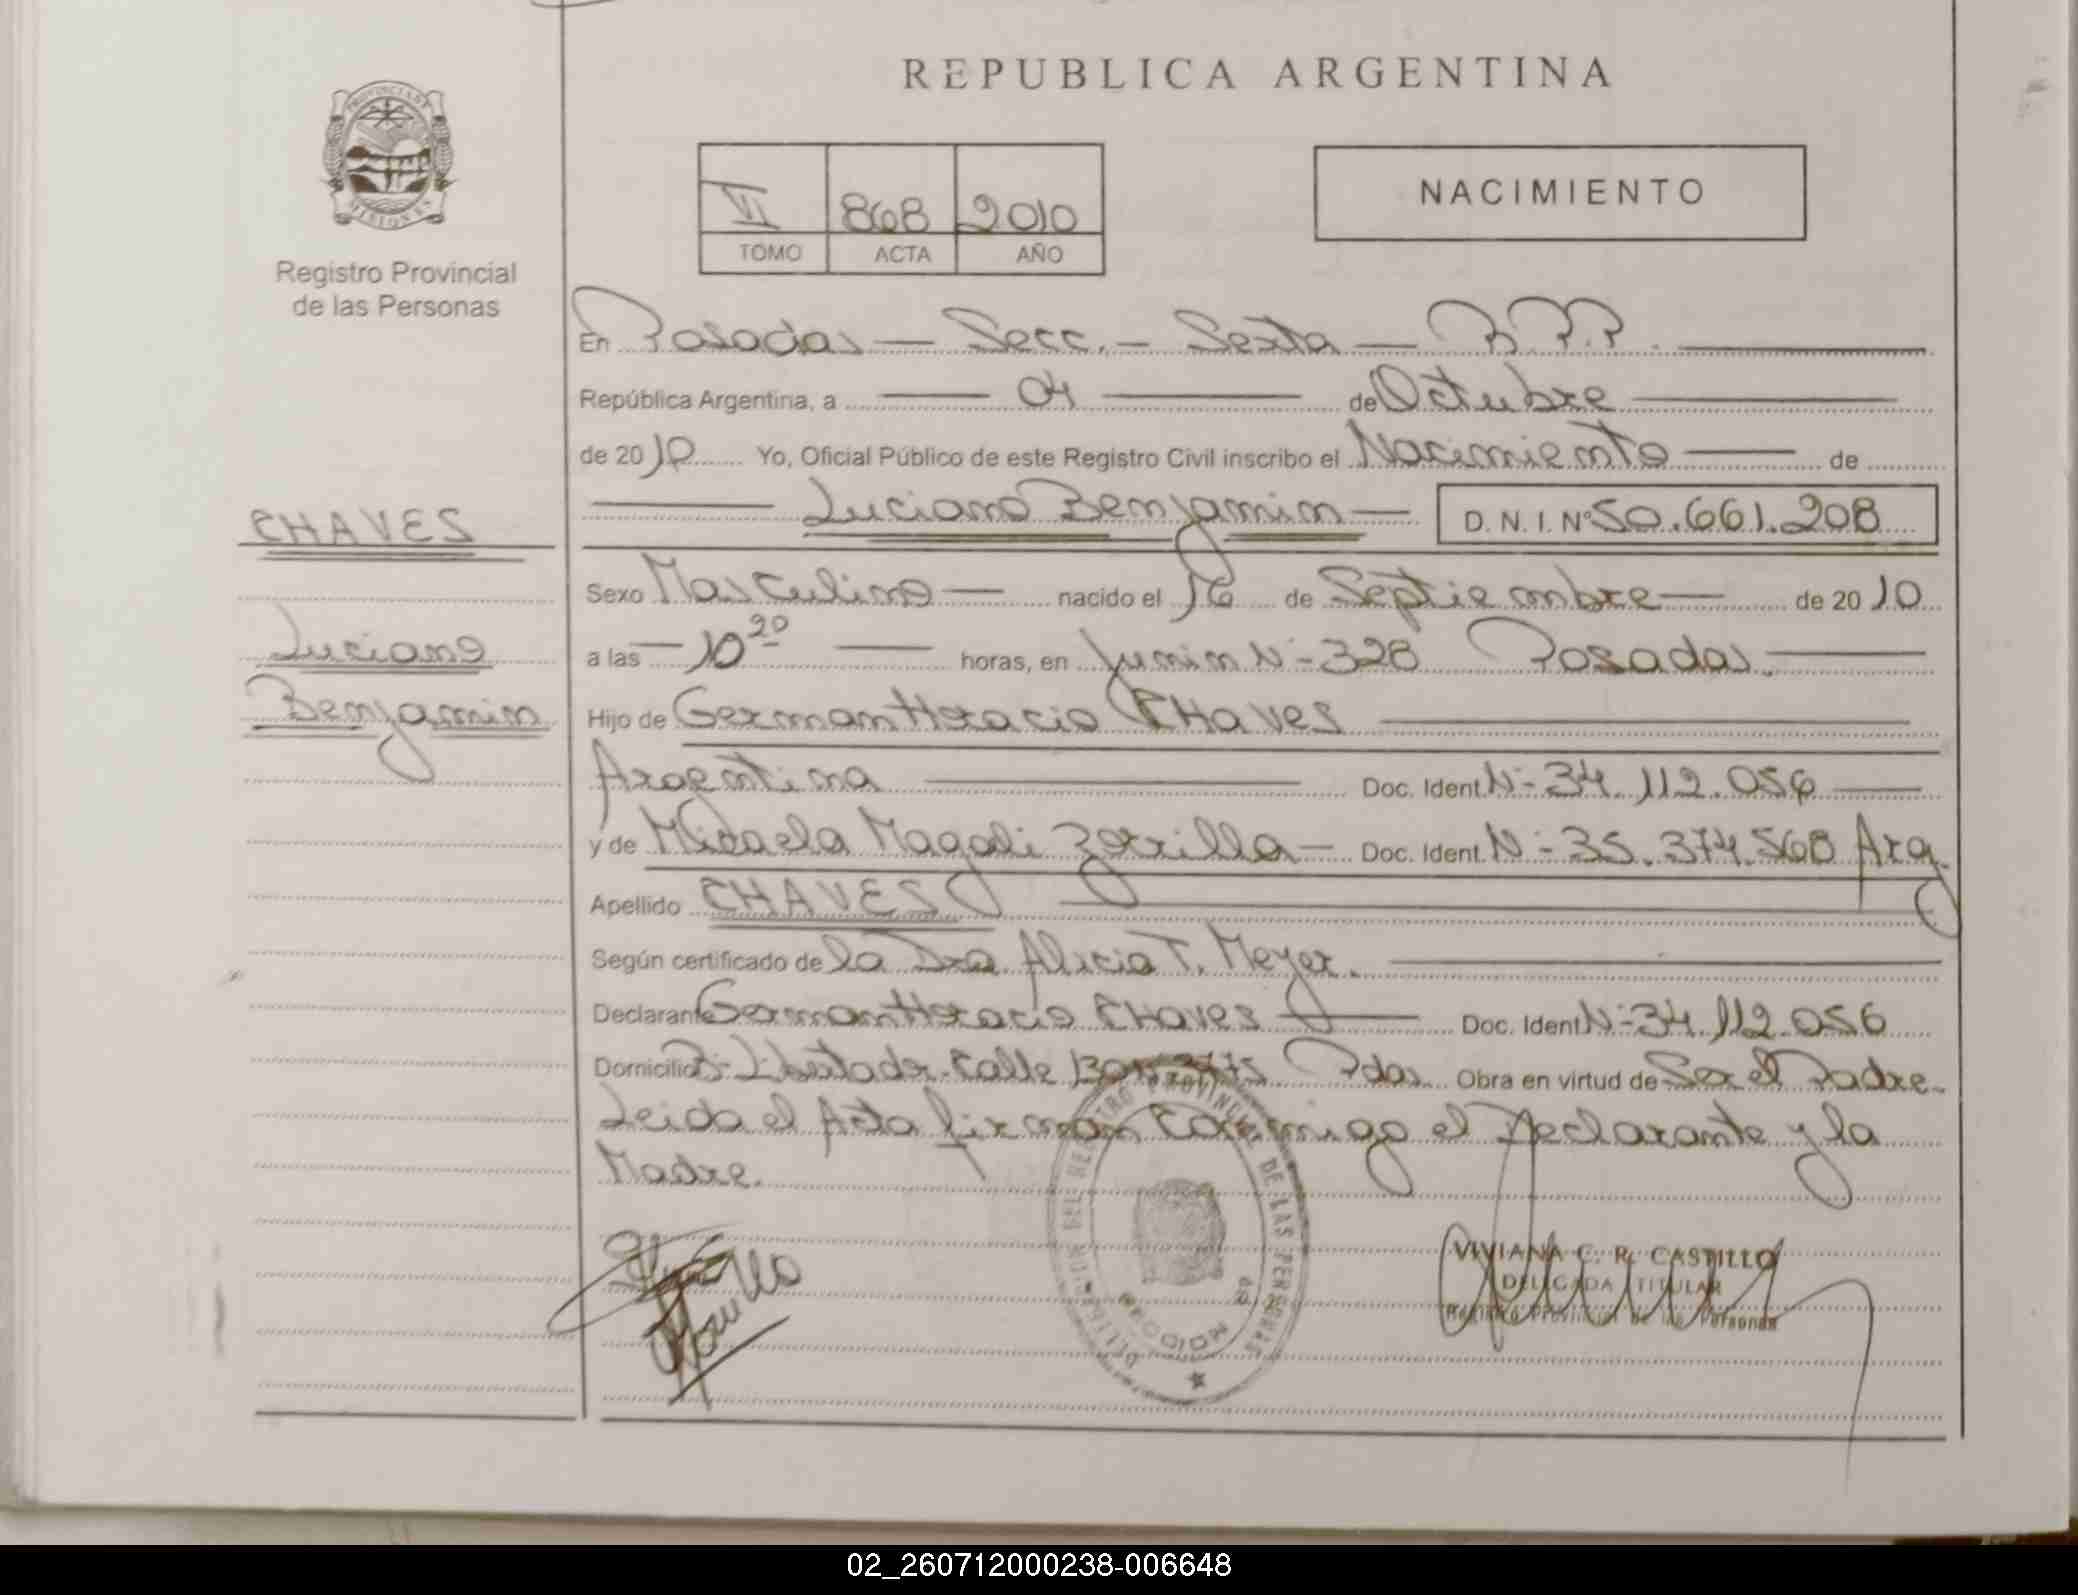 REPUBLICA ARGENTINA
PROVINCIA DE
MISIONES
Registro Provincial
de las Personas
VI 868 2010
TOMO ACTA AÑO
NACIMIENTO
En Posadas — Secc. — Sexta —
República Argentina, a — 04 — de Octubre —
de 2010 Yo, Oficial Público de este Registro Civil inscribo el Nacimiento — de
— Luciano Benjamin — D. N. I. Nº 50.661.208
CHAVES
Luciano
Benjamin
Sexo Masculino — nacido el 16 de Septiembre — de 2010
a las — 10 20 — horas, en Junin N- 328 Posadas. —
Hijo de German Horacio CHAVES —
Argentina — Doc. Ident. N- 34.112.056 —
y de Micaela Magali Zorrilla — Doc. Ident. N- 35.374.568 Arg.
Apellido CHAVES —
Según certificado de la Dra Alicia T. Meyer. —
Declarante German Horacio CHAVES — Doc. Ident. N- 34.112.056
Domicilio B- Libertador. Calle Pdas. Obra en virtud de Ser el Padre.
Leida el Acta firman conmigo el Declarante y la
Madre.
DEL REGISTRO PROVINCIAL DE LAS PERSONAS
VIVIANA C. R. CASTILLO
DELEGADA TITULAR
Registro Provincial de las Personas
02_260712000238-006648